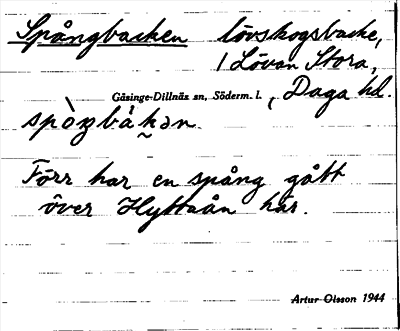 Spångbacken lövskogsbacke,
/ Lövan Stora,
Gåsinge-Dillnäs sn, Söderm. l. , Daga hd.
spòŋbàkən.
Förr har en spång gått
över Hyttaån här.
Artur Olsson 1944